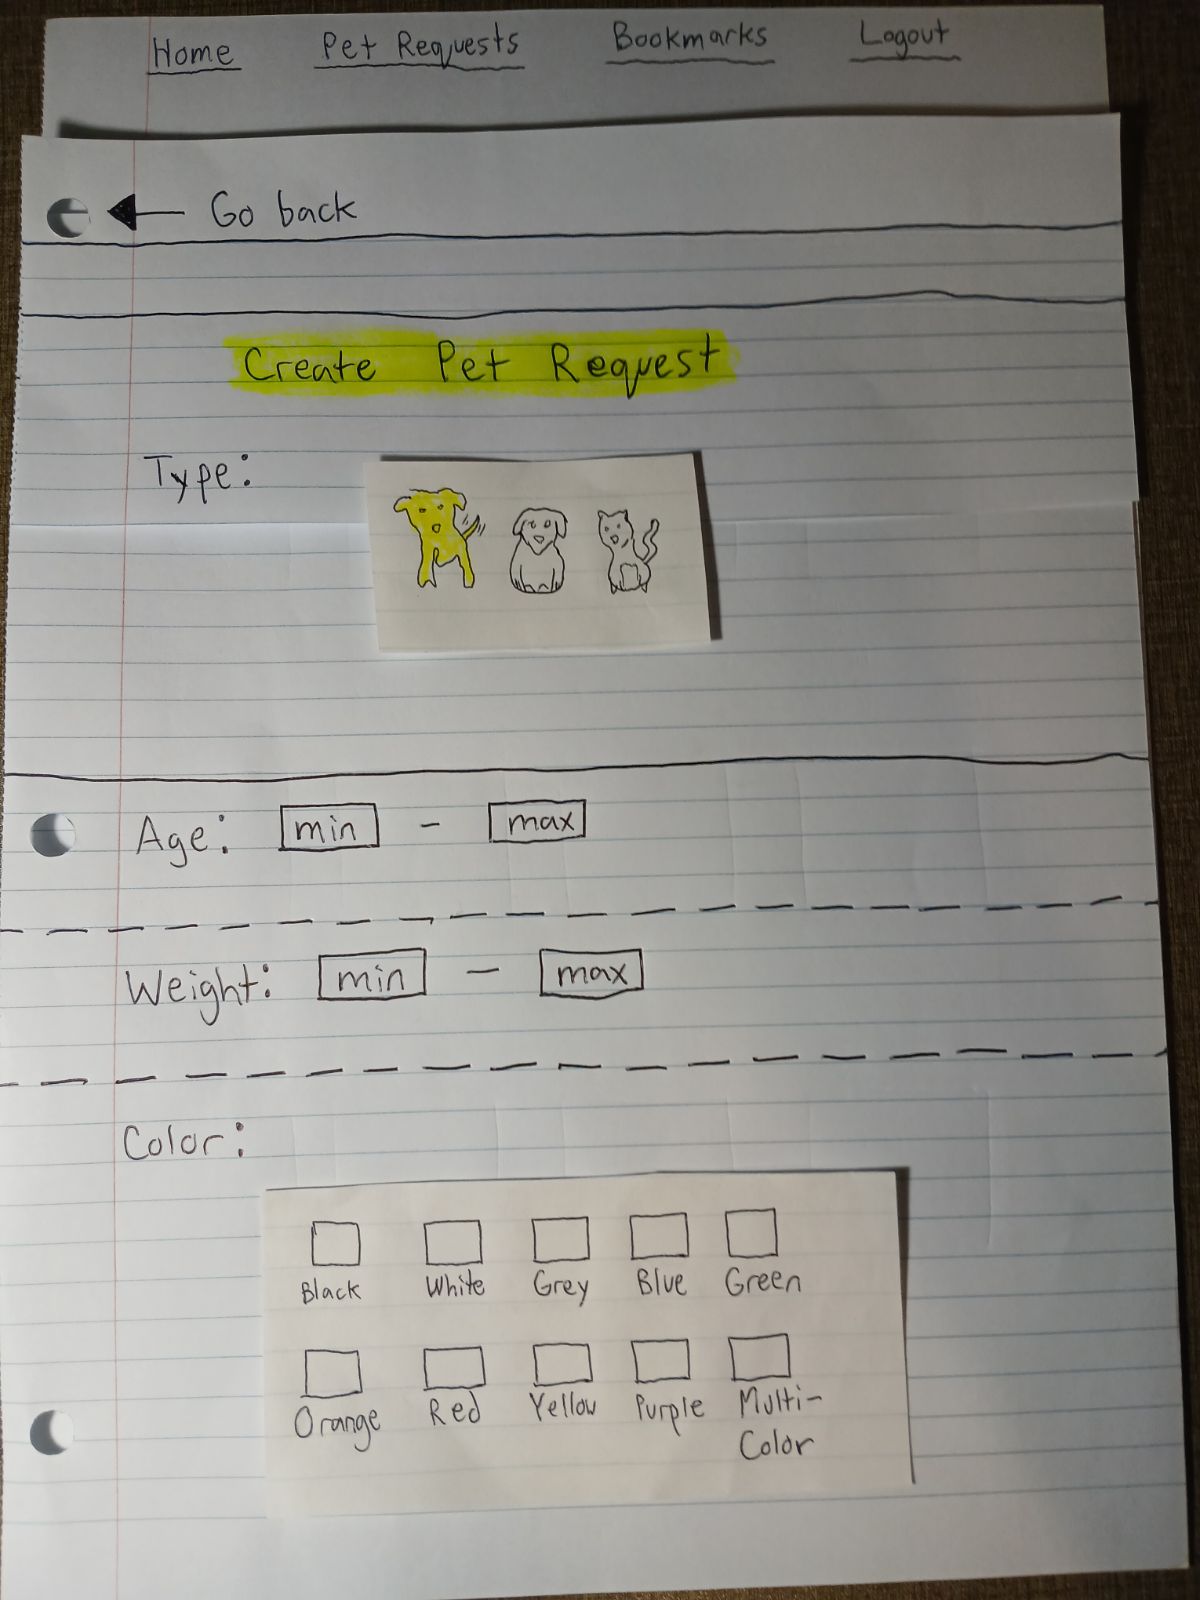 Home Pet Requests Bookmarks Logout
Go back
Create Pet Request
Type:
Age: min - max
Weight: min - max
Color:
Black White Grey Blue Green
Orange Red Yellow Purple Multi-
Color